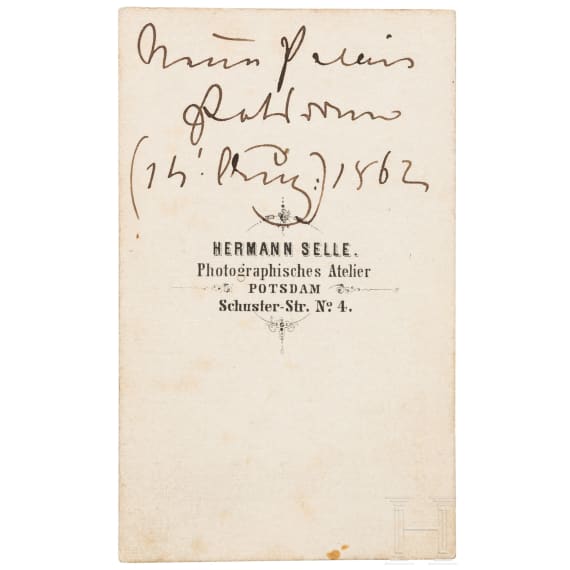 Neues Palais
Potsdam
(14. Aug:) 1862
HERMANN SELLE.
Photographisches Atelier
POTSDAM
Schuster-Str. No. 4.
H